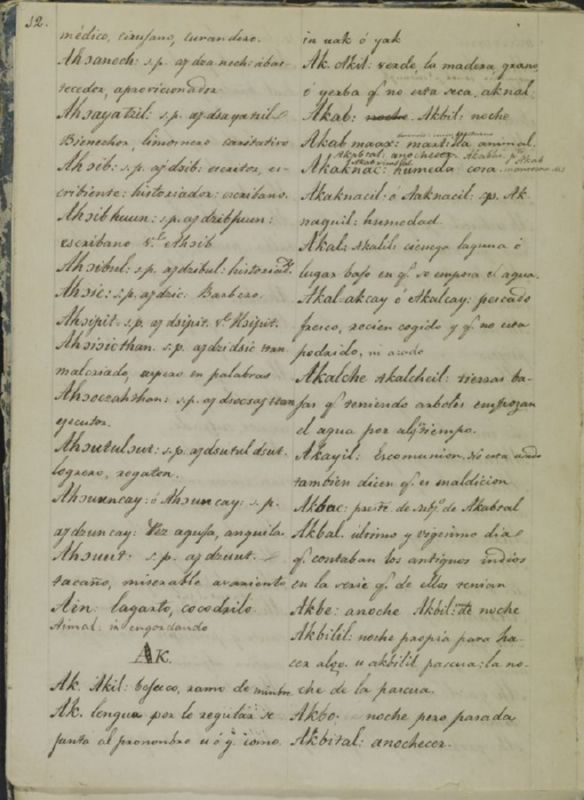 12.
médico, cirujano, curandero.
Ahɔanoch: s.p. ajdzanoch: abas-
tecedor, aprovicionador
Ahɔayatzil: s.p. ajdsayatzil
Bienechor, limosnero caritativo
Ahɔib: s.p. ajdsib: escritor, es-
cribiente: historiador: escribano.
Ahɔibhuun: s.p. ajdzibjuun:
escribano V.e Ahɔib
Ahɔibul: s.p. ajdzibul: historiad.r
Ahɔic: s.p. ajdzic: Barbero.
Ahɔipit. s.p. ajdsipit. V.e Hɔipit.
Ahɔiɔicthan. s.p. ajdzidsic tan
malcriado, aspero en palabras
Ahɔoczahthan: s.p. ajdsocsaj tan
ejecutor.
Ahɔutulɔut: s.p. ajdsutul dsut.
logrero, regaton.
Ahɔuuncay: ó Ahɔuncay: s.p.
ajdzuncay: Pez aguja, anguila.
Ahɔuut. s.p. ajdzuut.
tacaño, miserable avariento
Ain: lagarto, cocodrilo.
Aimal: engordando
Ak.
Ak. Akil: bejuco, ramo de mimbre
Ak. lengua por lo regular se
junta al pronombre u ó y. como
in uak ó yak
Ak. Akil: verde, la madera, grano
ó yerba q.e no esta seca. aknal:
Akab: noche. Akbil: noche
Akab maax: martilla animal.
Akabcal: anochecer.
Akaknac: humeda cosa.
Akaknacil ó Aaknacil: s.p. Ak
naquil: humedad.
Akal: Akalil: cienega laguna ó
lugar bajo en q.e se emposa el agua.
Akal-akcay ó Akalcay: pescado
fresco, recien cogido y q.e no esta
podrido, ni asado
Akalche Akalcheil: tierras ba-
jas q.e teniendo arboles empozan
el agua por alg.n tiempo.
Akayil: Escomunion. No esta usado
tambien dicen q.e es maldicion
Akbac: pret.e de subj.o de Akabcal
Akbal. ultimo y vigesimo dia
q.e contaban los antiguos indios
en la serie q.e de ellos tenian
Akbe: anoche Akbil: de noche
Akbilil: noche propia para ha-
cer algo. u akbilil pascua: la no-
che de la pascua.
Akbo. noche pero pasada
Akbital: anochecer.